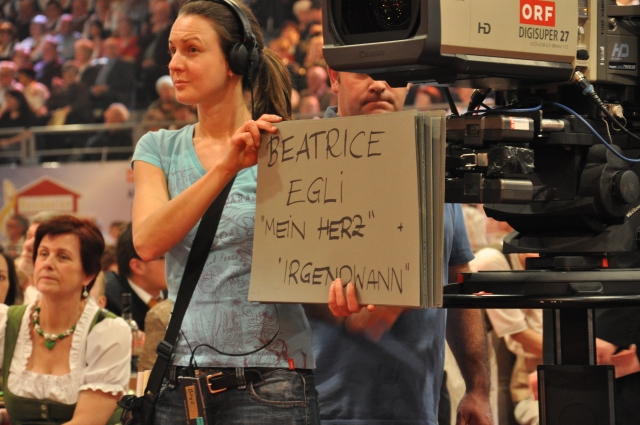 ORF
HD
DIGISUPER 27
HD
BEATRICE
EGLI
"MEIN HERZ" +
"IRGENDWANN"